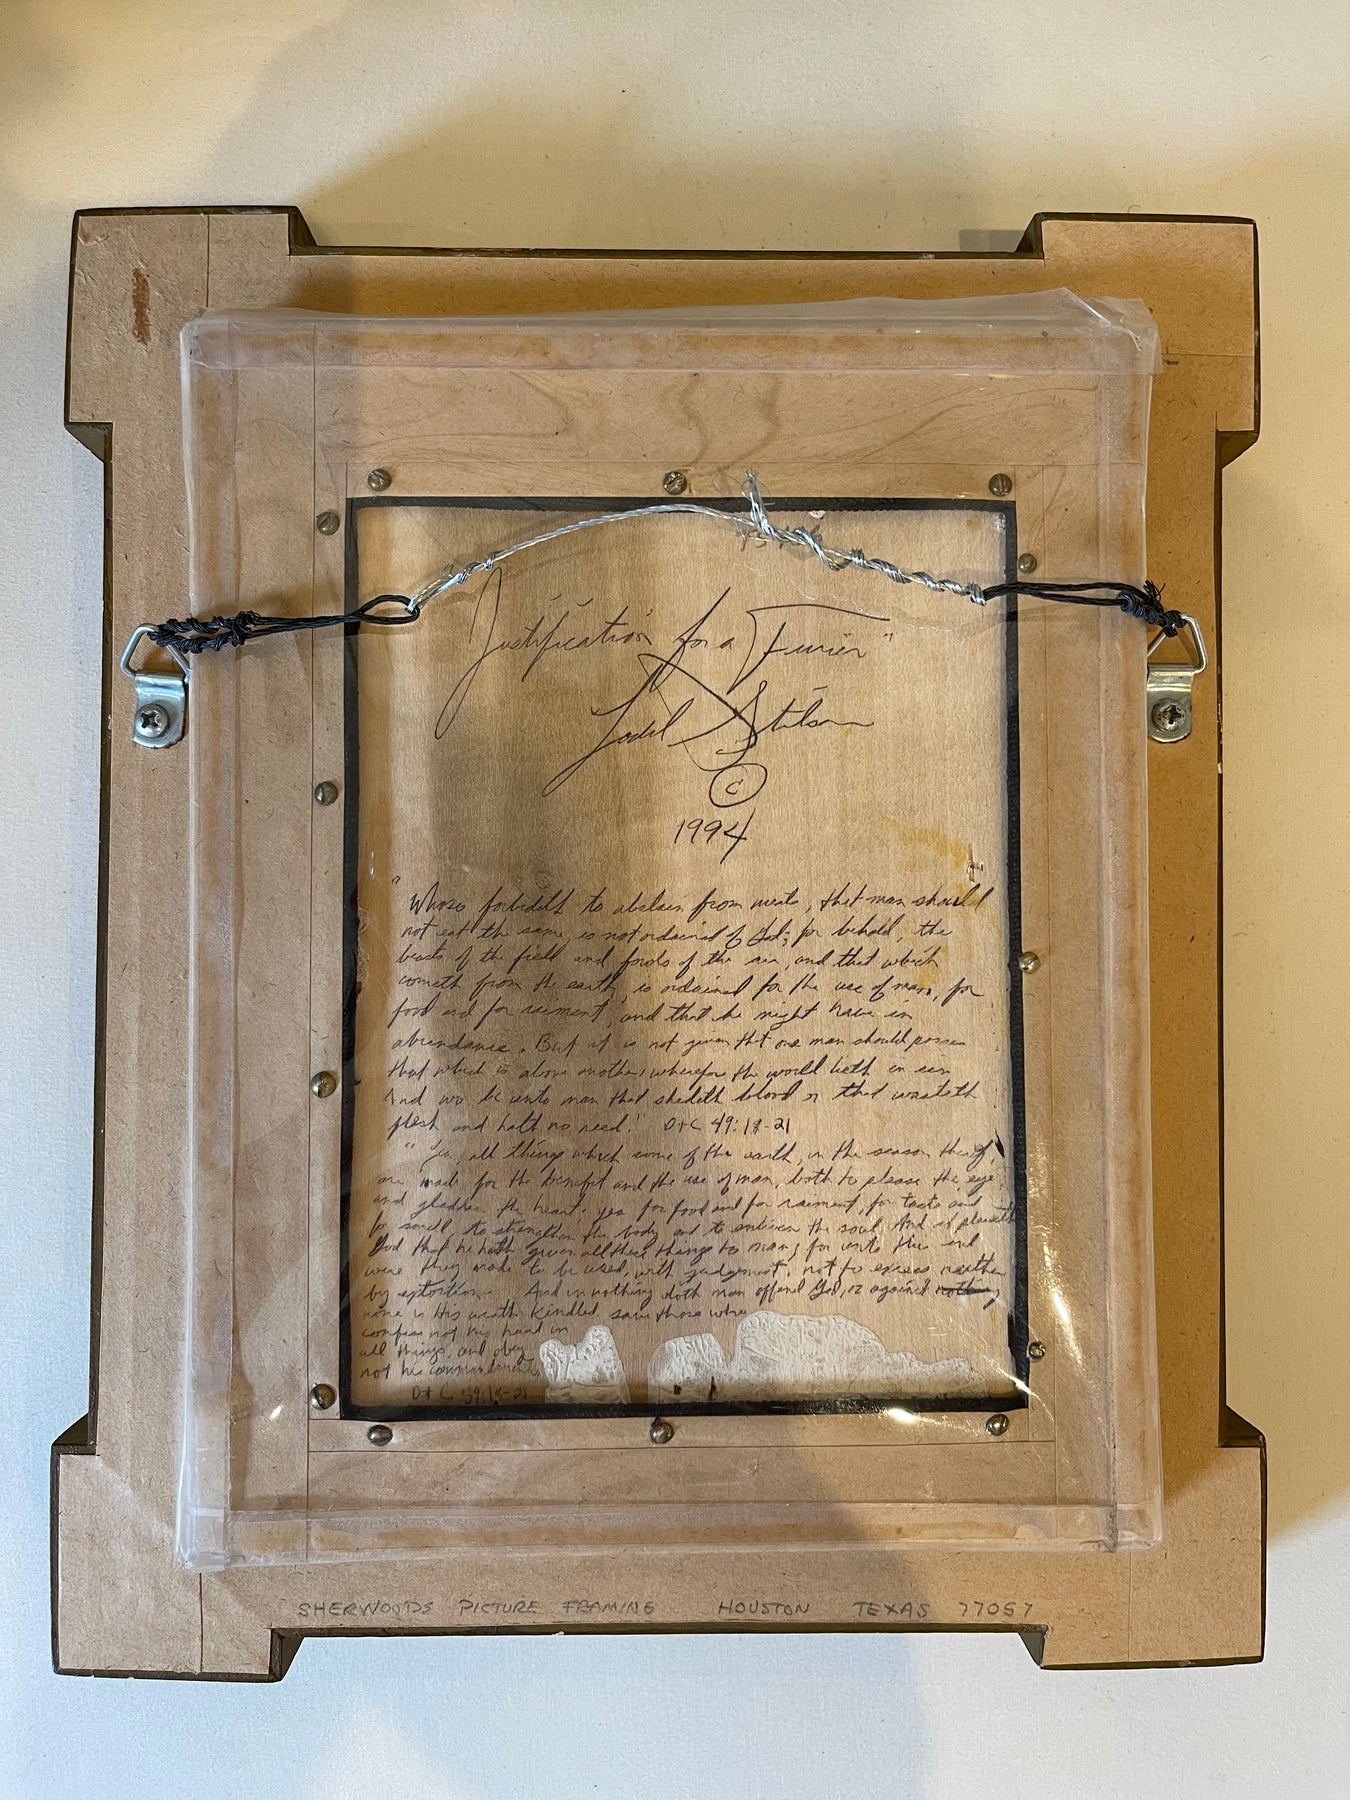 "Justification for a Furier"
Stilson
©
1994
"Whoso forbideth to abstain from meats, that man should
not eat the same, is not ordained of God; for behold, the
beasts of the field and fowls of the air, and that which
cometh from the earth, is ordained for the use of man, for
food and for raiment, and that he might have in
abundance. But it is not given that one man should possess
that which is above another, wherefore the world lieth in sin
And wo be unto man that shedeth blood or that wasteth
flesh and hath no need." D+C 49:18-21
"Yea, all things which come of the earth, in the season thereof,
are made for the benefit and the use of man, both to please the eye,
and gladden the heart. yea for food and for raiment, for taste and
for smell, to strengthen the body and to enliven the soul. And it pleaseth
God that he hath given all these things to man; for unto this end
were they made to be used, with judgement, not to excess neither
by extortion. And in nothing doth man offend God, or against
none is His wrath kindled save those who
confess not his hand in
all things, and obey
not his commandments.
D+C 59:18-21
SHERWOODS PICTURE FRAMING HOUSTON TEXAS 77057